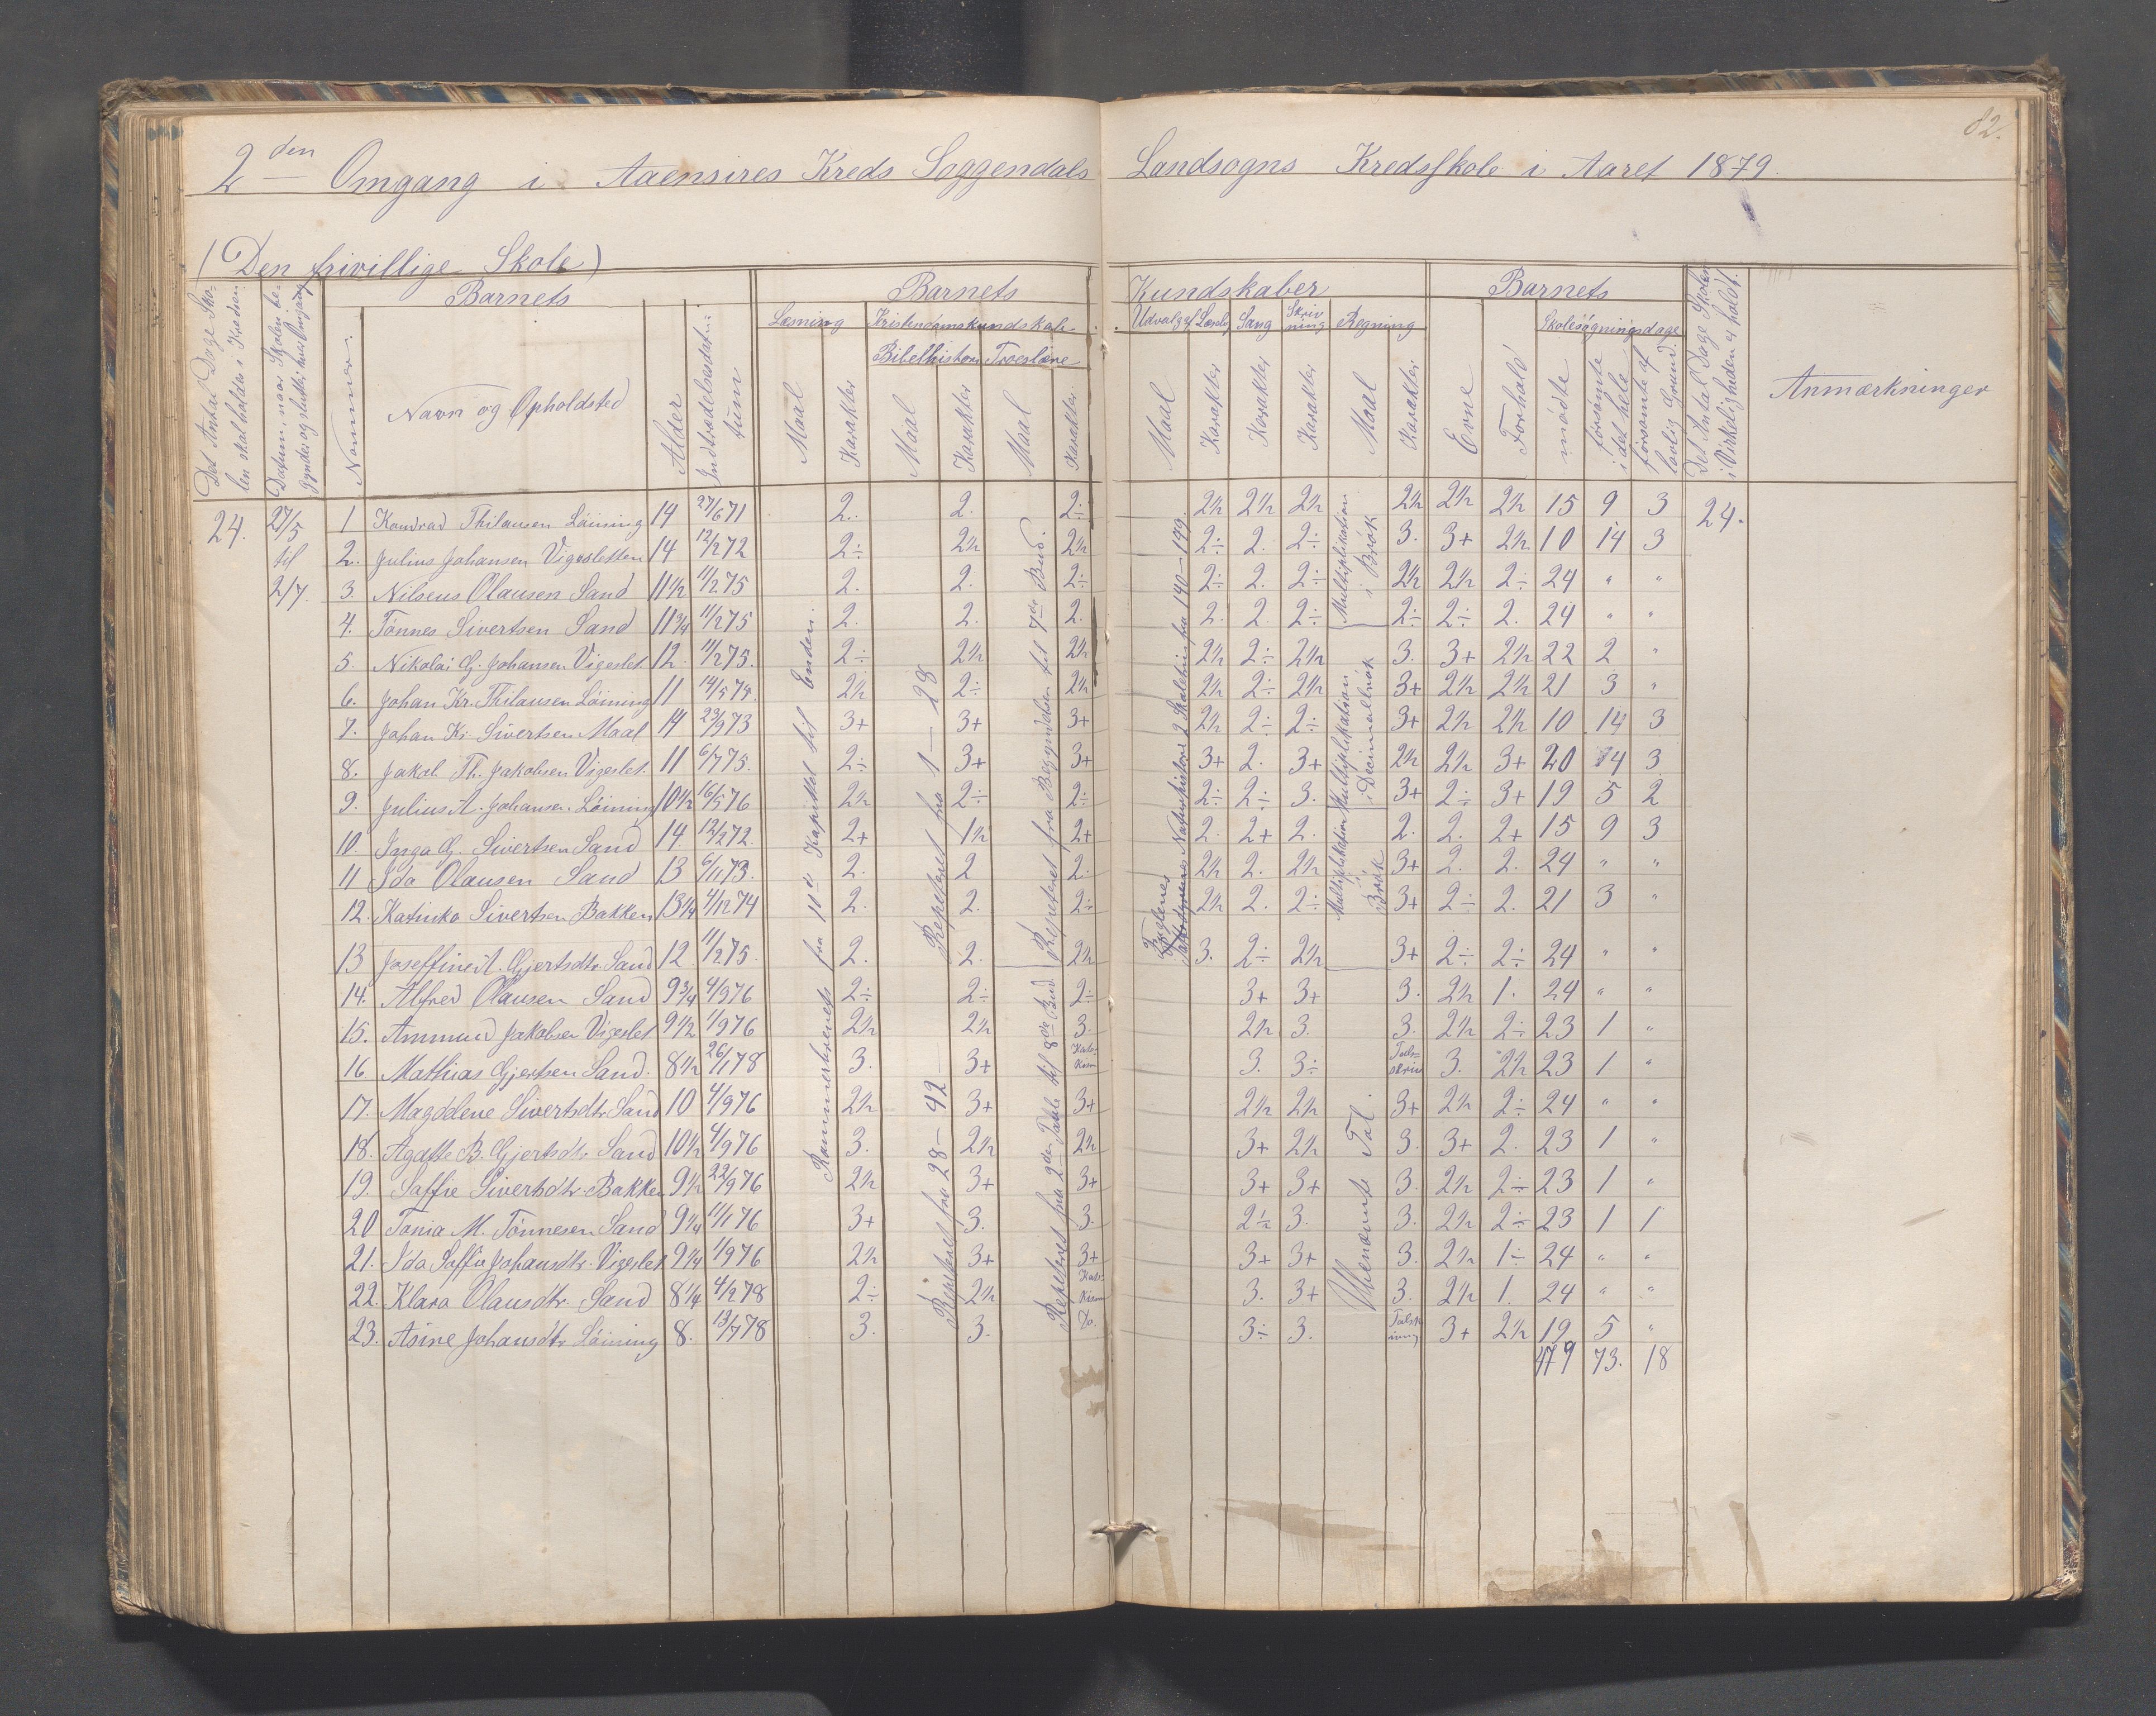 82.
2den Omgang i Aaensires Kreds Soggendals Landsogns Kredsskole i Aaret 1879.
(Den frivillige Skole)
Det Antal Dage Skolen skal holdes i Kredsen
Datum, naar Skolen begynder og slutter hver Omgang
Nummer.
Barnets
Navn og Opholdsted
Alder
Indtrædelsesdatum
Barnets Kundskaber
Læsning
Maal
Karakter
Kristendomskundskab
Bibelhistorie
Maal
Karakter
Troeslære
Maal
Karakter
Udvalg af Læseb.
Maal
Karakter
Sang
Karakter
Skrivning
Karakter
Regning
Maal
Karakter
Barnets
Evne
Forhold
Skolesøgningsdage
mødte
forsømte i det hele
forsømte af lovlig Grund.
Det Antal Dage Skolen i Virkeligheden er holdt.
Anmærkninger
24. 27/5 til 2/7.
24.
1 Konrad Thilausen Løining 14 27/671 2. 2. 2÷ 2½ 2½ 2½ 2½ 2½ 2½ 15 9 3
2. Julius Johansen Vigesletten 14 12/272 2÷ 2½ 2½ 2÷ 2. 2÷ 3. 3+ 2½ 10 14 3
3. Nilseus Olausen Sand 11½ 11/275 2. 2. 2÷ 2÷ 2. 2÷ 2½ 2½ 2÷ 24 " "
4. Tønnes Sivertsen Sand 11¾ 11/275 2. 2. 2. 2. 2. 2÷ 2÷ 2÷ 2. 24 " "
5. Nikolai G. Johansen Vigeslet 12. 11/275. 2÷ 2½ 2½ 2½ 2÷ 2½ 3. 3+ 2½ 22 2 "
6. Johan Kr. Thilausen Løining 11 14/574. 2½ 2÷ 2½ 2½ 2÷ 2½ 3+ 2½ 2½ 21 3 "
7. Johan Kr. Sivertsen Maal 14 23/973 3+ 3+ 3+ 2½ 2÷ 2÷ 3+ 2½ 2½ 10 14 3
8. Jakob Th. Jakobsen Vigeslet. 11 6/775. 2÷ 3+ 3+ 3+ 2. 3+ 2½ 2½ 3+ 20 4 3
9. Julius A. Johansen Løining 10½ 16/576 2½ 2÷ 2÷ 2÷ 2÷ 3. 3+ 2÷ 3+ 19 5 2
10. Inga G. Sivertsen Sand 14. 12/272. 2+ 1½ 2+ 2. 2+ 2. 2. 2. 2+ 15 9 3
11 Ida Olausen Sand 13 6/1173. 2. 2 2. 2½ 2. 2½ 3+ 2. 2. 24 " "
12. Katinka Sivertsen Bakken 13¼ 4/1274 2. 2. 2÷ 2½ 2. 2÷ 3+ 2÷ 2. 21 3 "
13 Joseffine A. Gjertsdtr. Sand 12 11/275. 2. 2. 2½ 3. 2÷ 2½ 3+ 2÷ 2÷ 24 " "
14. Alfred Olausen Sand 9¾ 4/976 2÷ 2÷ 2÷ 3+ 3+ 3. 2½ 1. 24 " "
15. Ammund Jakobsen Vigeslet 9½ 1/976 2½ 2½ 3. 2½ 3. 3. 2½ 2÷ 23 1 "
16. Mathias Gjertsen Sand. 8½ 26/178 3. 3+ 3. 3÷ 3. 2½ 23 1 "
17. Magdelene Sivertsdtr. Sand 10 4/976 2½ 3+ 3+ 2½ 2½ 3+ 2½ 2÷ 24 " "
18. Agathe B. Gjertsdtr. Sand 10½ 4/976 3. 2½ 2½ 3+ 2½ 3. 3+ 2. 23 1 "
19. Saffie Sivertsdtr. Bakken 9½ 22/976 2½ 3+ 3+ 3+ 3+ 3. 2½ 2÷ 23 1 "
20 Tonia M. Tønnesen Sand 9¼ 11/176 3+ 3. 3. 2½ 3. 3. 2½ 2÷ 23 1 1
21. Ida Saffie Johansdtr. Vigeslet 9¼ 1/976 2½ 3+ 3+ 3+ 3+ 3. 2½ 1÷ 24 " "
22. Klara Olausdtr. Sand 8¼ 4/278 2÷ 2½ 3. 3+ 3. 2½ 1. 24 " "
23. Asine Johansdtr. Løining 8. 13/778 3. 3. Do. 3÷ 3. 3+ 2½ 19 5 "
479 73. 18
fra 11te Kapittel til Enden.
Repeteret fra 1 — 28
Repeteret fra Begyndelsen til 7de Bud.
Fuglenes Naturhistorie 2 Skoletrin fra 140 — 199.
Multiplikation i Brøk
Multiplikation i Decimalbrøk
Multiplikation i Brøk
Repeteret fra 28 — 42
Repeteret fra 2den Part til 8de Bud
Ubenævnte Tal.